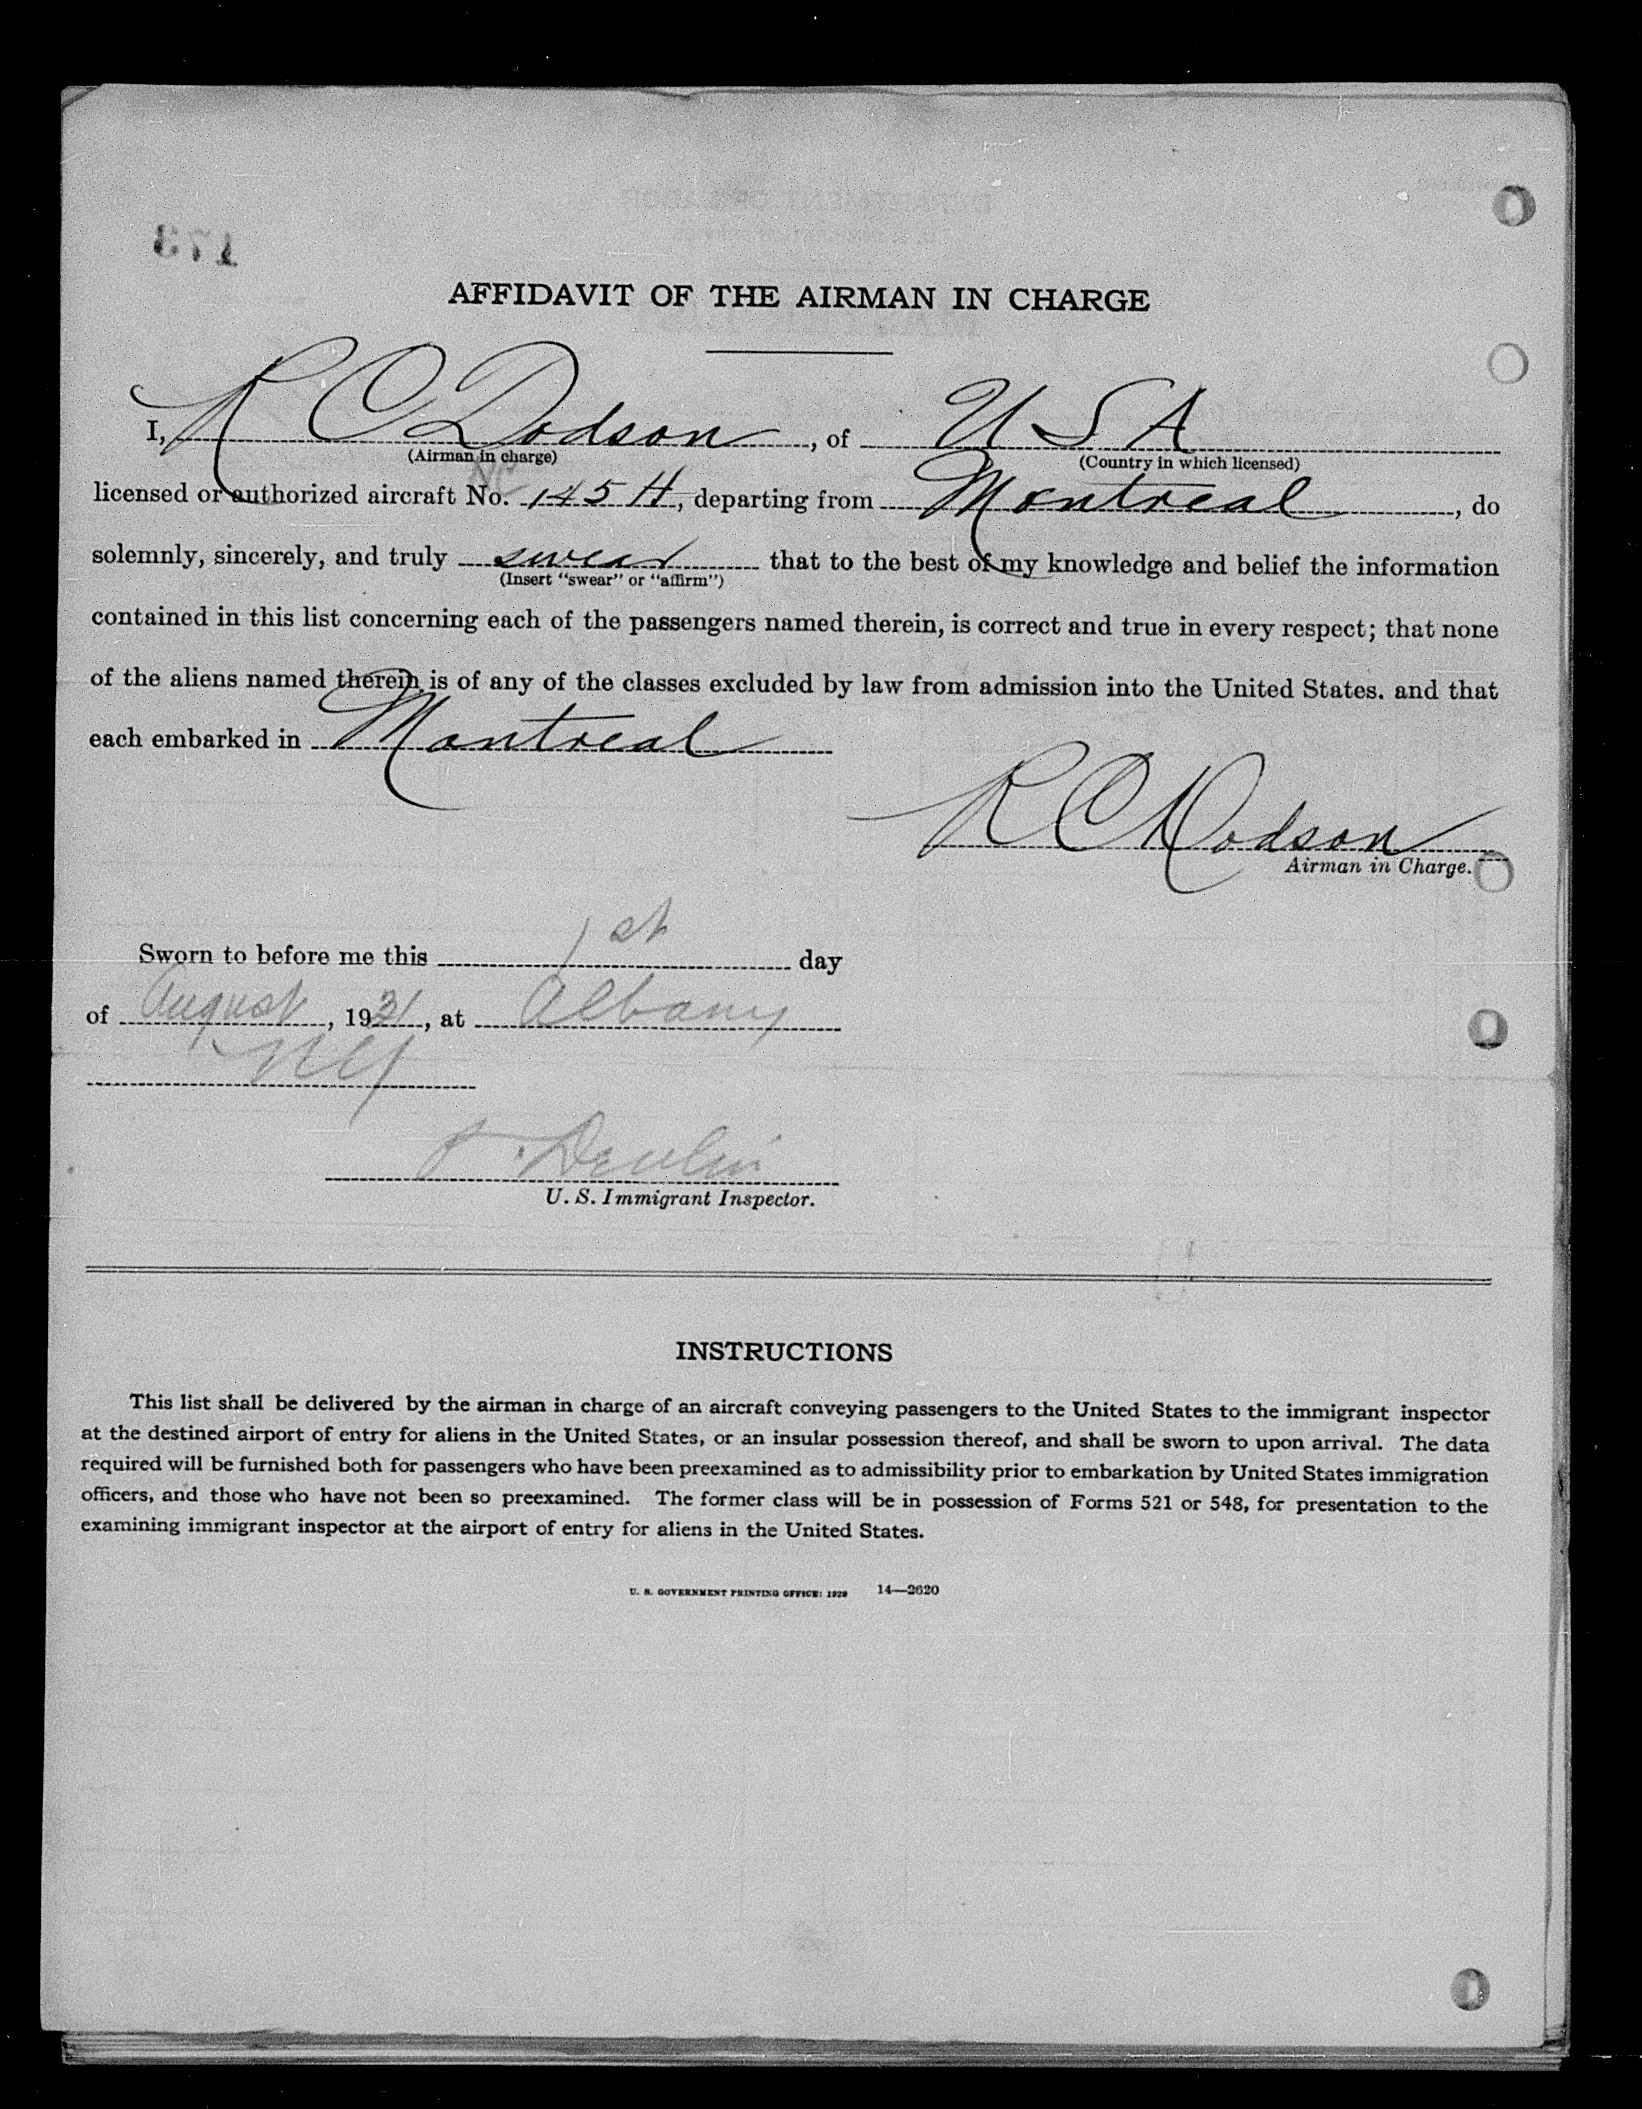 173
AFFIDAVIT OF THE AIRMAN IN CHARGE
I, R C Dodson, of U S A
(Airman in charge) (Country in which licensed)
NC
licensed or authorized aircraft No. 145 H, departing from Montreal, do
solemnly, sincerely, and truly swear that to the best of my knowledge and belief the information
(Insert "swear" or "affirm")
contained in this list concerning each of the passengers named therein, is correct and true in every respect; that none
of the aliens named therein is of any of the classes excluded by law from admission into the United States. and that
each embarked in Montreal
R C Dodson
Airman in Charge.
Sworn to before me this 1st day
of August, 1931, at Albany
NY
Devlin
U. S. Immigrant Inspector.
INSTRUCTIONS
This list shall be delivered by the airman in charge of an aircraft conveying passengers to the United States to the immigrant inspector
at the destined airport of entry for aliens in the United States, or an insular possession thereof, and shall be sworn to upon arrival. The data
required will be furnished both for passengers who have been preexamined as to admissibility prior to embarkation by United States immigration
officers, and those who have not been so preexamined. The former class will be in possession of Forms 521 or 548, for presentation to the
examining immigrant inspector at the airport of entry for aliens in the United States.
U. S. GOVERNMENT PRINTING OFFICE: 1929 14—2620